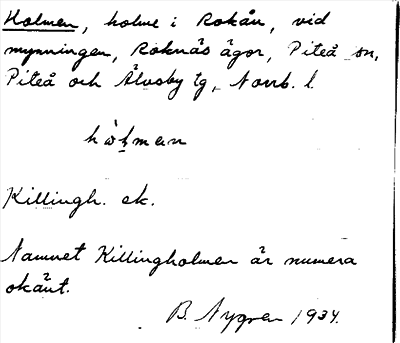 Holmen, holme i Rokån, vid
mynningen, Roknäs ägor, Piteå sn,
Piteå och Älvsby tg, Norrb. l.
hòḷmen
Killingh. ek.
Namnet Killingholmen är numera
okänt.
B. Nygren 1934.